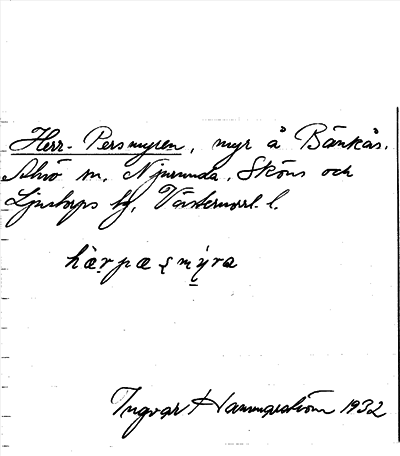 Herr-Persmyren, myr å Bänkås.
Alnö m. Njurunda, Sköns och
Ljustorps tg, Västernorrl. l.
hæ̀rpæʂmýra
Ingvar Hammarström 1932